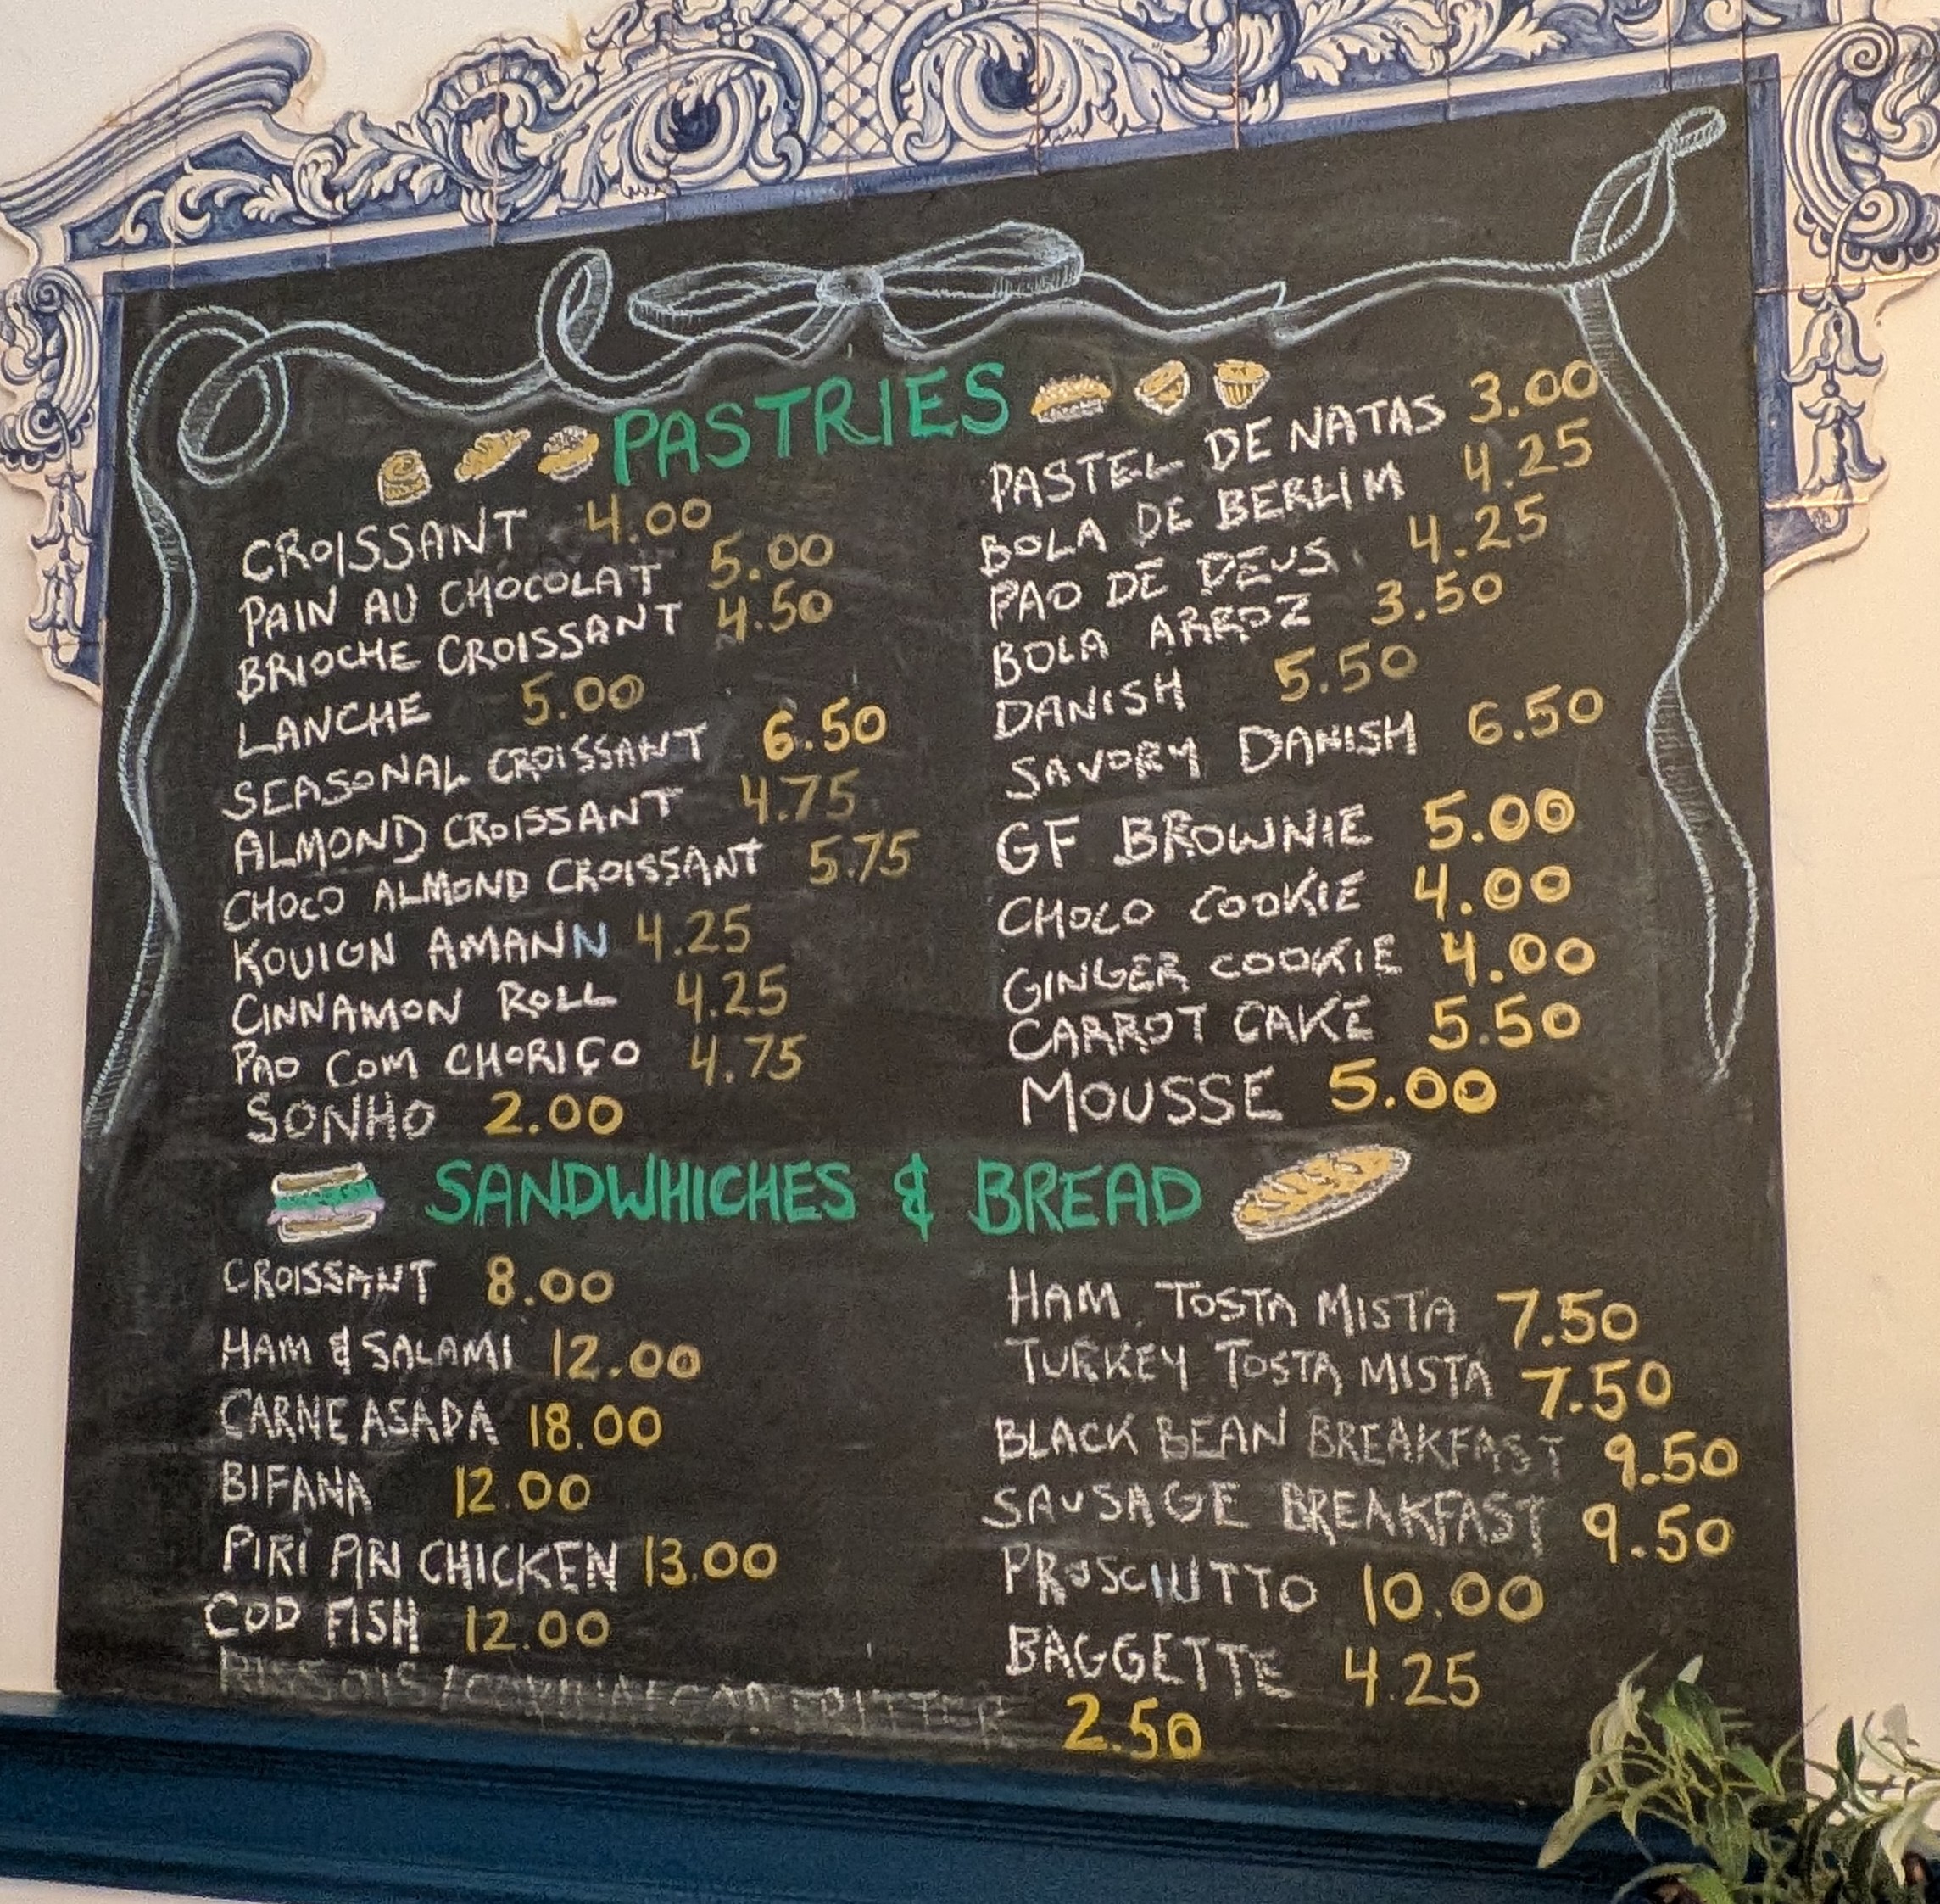 PASTRIES
CROISSANT 4.00
PAIN AU CHOCOLAT 5.00
BRIOCHE CROISSANT 4.50
LANCHE 5.00
SEASONAL CROISSANT 6.50
ALMOND CROISSANT 4.75
CHOCO ALMOND CROISSANT 5.75
KOUIGN AMANN 4.25
CINNAMON ROLL 4.25
PAO COM CHORIÇO 4.75
SONHO 2.00
PASTEL DE NATAS 3.00
BOLA DE BERLIM 4.25
PAO DE DEUS 4.25
BOLA ARROZ 3.50
DANISH 5.50
SAVORY DANISH 6.50
GF BROWNIE 5.00
CHOCO COOKIE 4.00
GINGER COOKIE 4.00
CARROT CAKE 5.50
MOUSSE 5.00
SANDWHICHES & BREAD
CROISSANT 8.00
HAM & SALAMI 12.00
CARNE ASADA 18.00
BIFANA 12.00
PIRI PIRI CHICKEN 13.00
COD FISH 12.00
HAM TOSTA MISTA 7.50
TURKEY TOSTA MISTA 7.50
BLACK BEAN BREAKFAST 9.50
SAUSAGE BREAKFAST 9.50
PROSCIUTTO 10.00
BAGGETTE 4.25
RISSOIS / 2.50